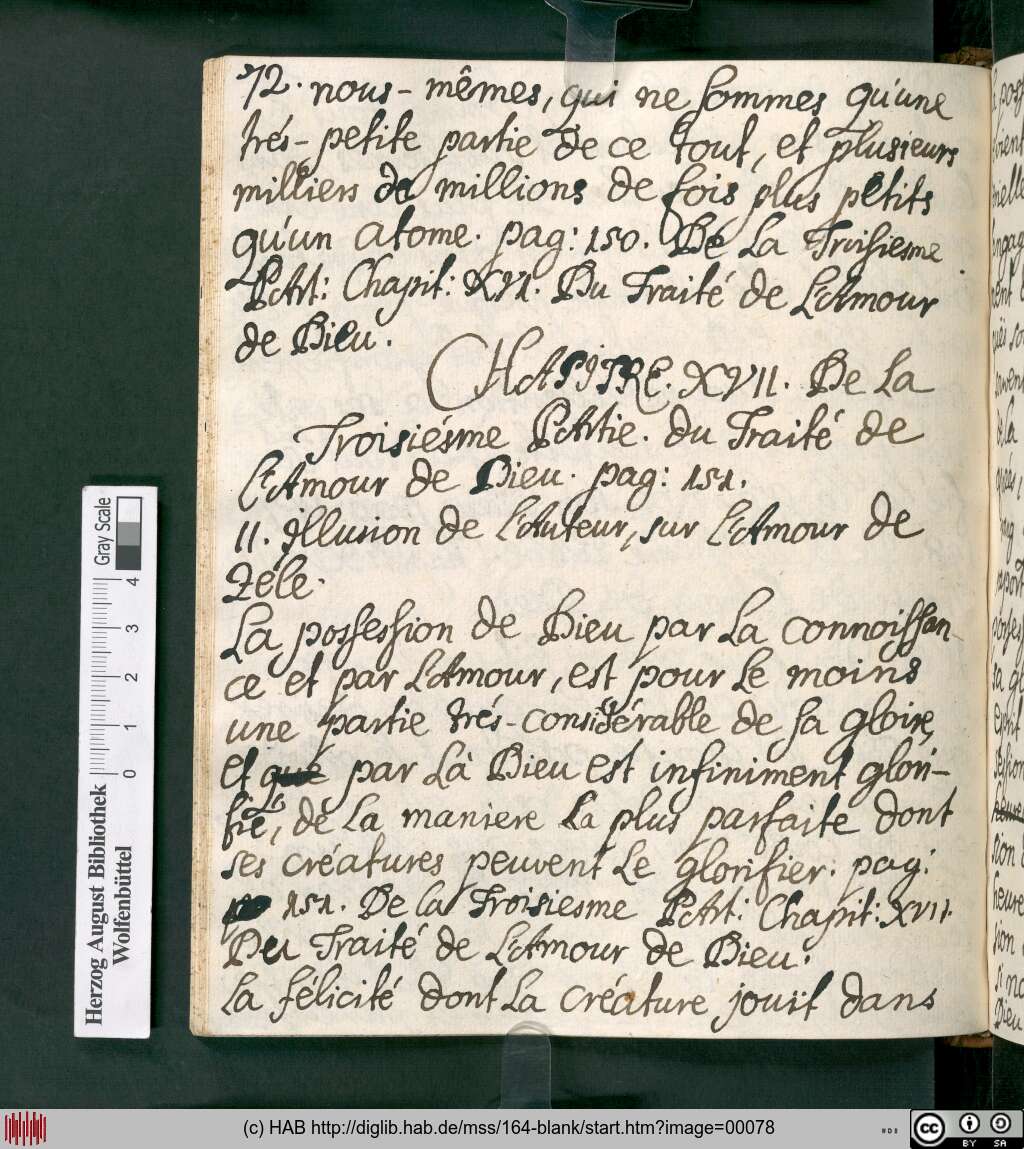 72. nous-mêmes, qui ne sommes qu'une
trés-petite partie de ce tout, et plusieurs
milliers de millions de fois plus petits
qu'un atome. pag: 150. De La Troisiesme
PArt: Chapit: XVI. Du Traité de L'Amour
de Dieu.
CHAPITRE. XVII. De La
Troisiésme PArtie. du Traité de
L'Amour de Dieu. pag: 151.
II. Illusion de L'Auteur, sur L'Amour de
Zéle.
La possession de Dieu par La connoissan
ce et par L'Amour, est pour Le moins
une partie trés-considérable de sa gloire,
et que par Là Dieu est infiniment glori-
fié, de La maniere La plus parfaite dont
ses créatures peuvent Le glorifier. pag:
151. De La Troisiesme PArt: Chapit: XVII.
Du Traité de L'Amour de Dieu.
La félicité dont La créature jouït dans
Gray Scale
0 1 2 3 4
Herzog August Bibliothek
Wolfenbüttel
(c) HAB http://diglib.hab.de/mss/164-blank/start.htm?image=00078
CC BY SA